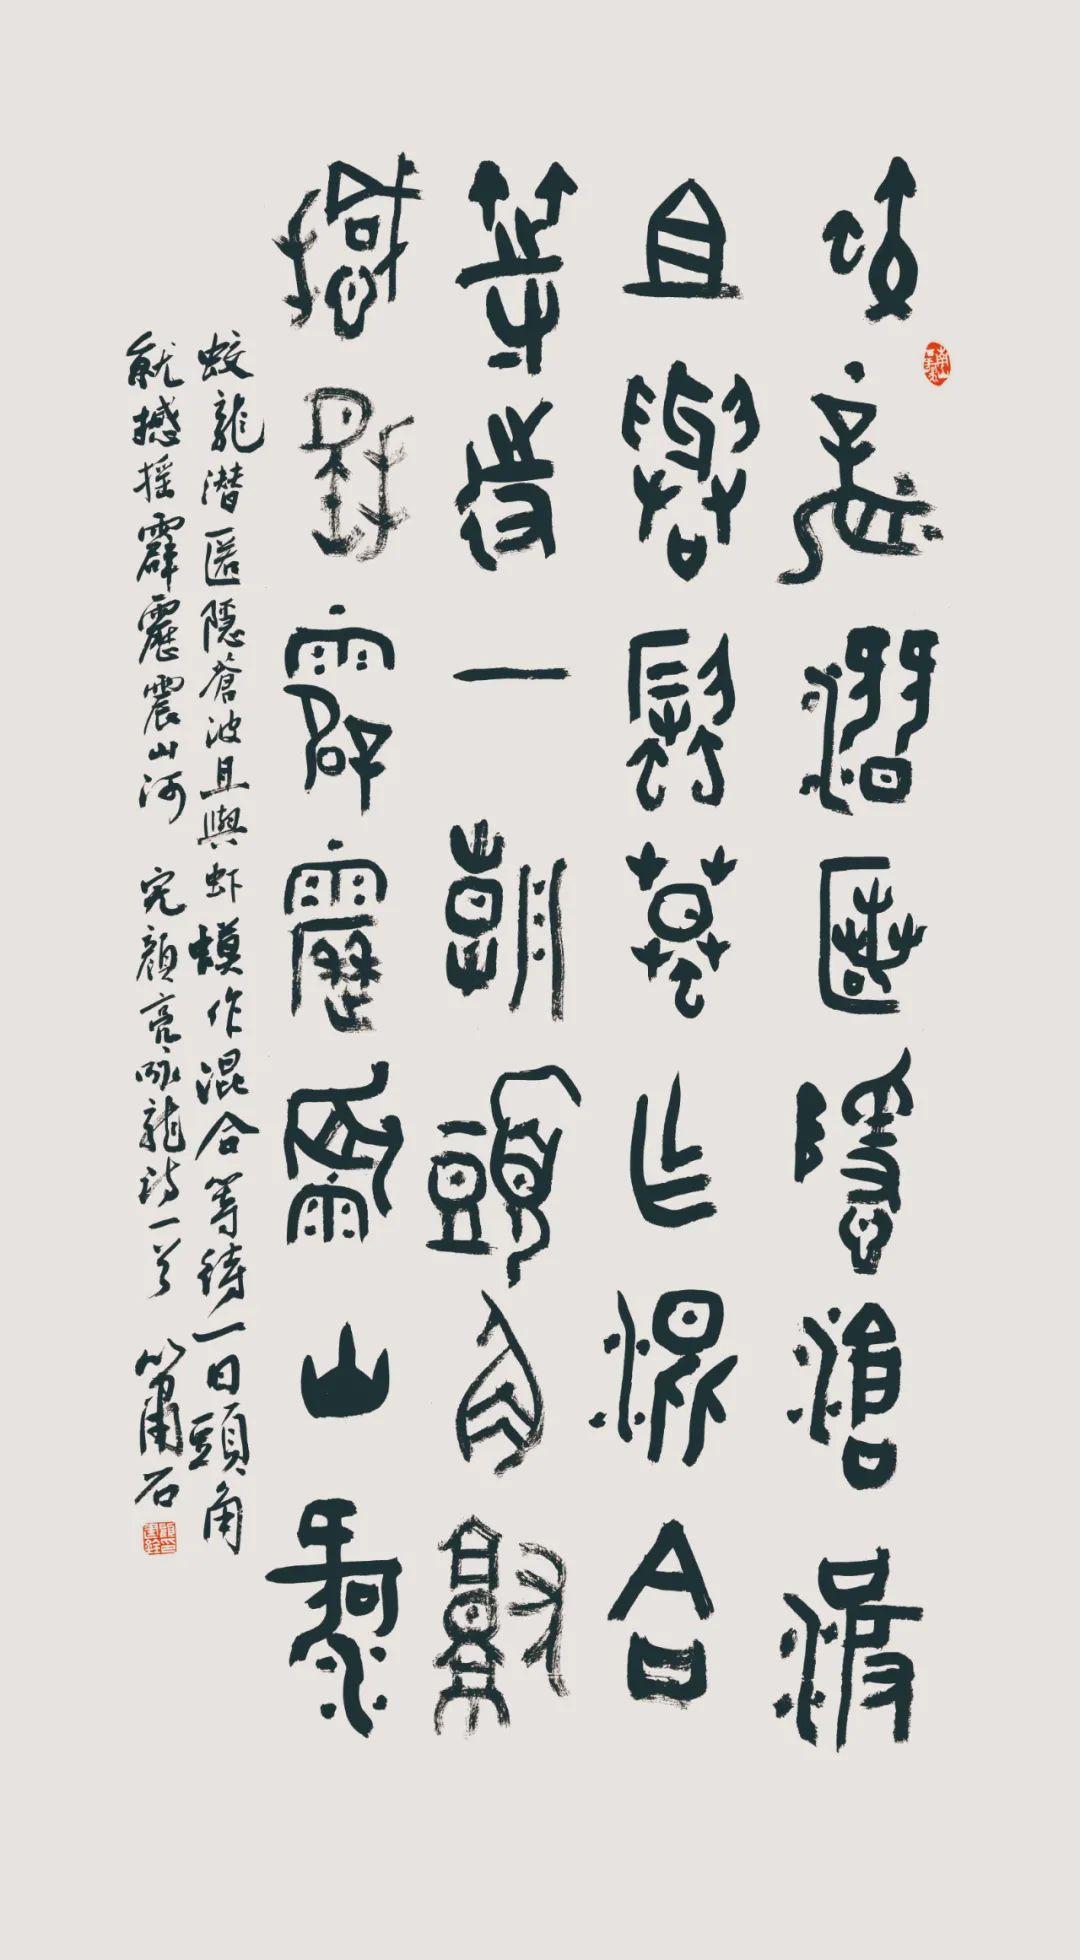 蛟龍潛匿隱滄波
且與蝦蟆作混合
等待一朝頭角就
撼搖霹靂震山河
蛟龍潛匿隱蒼波且與虾蟆作混合等待一日頭角
就撼摇霹靂震山河 完顏亮咏龍詩一首 簫石